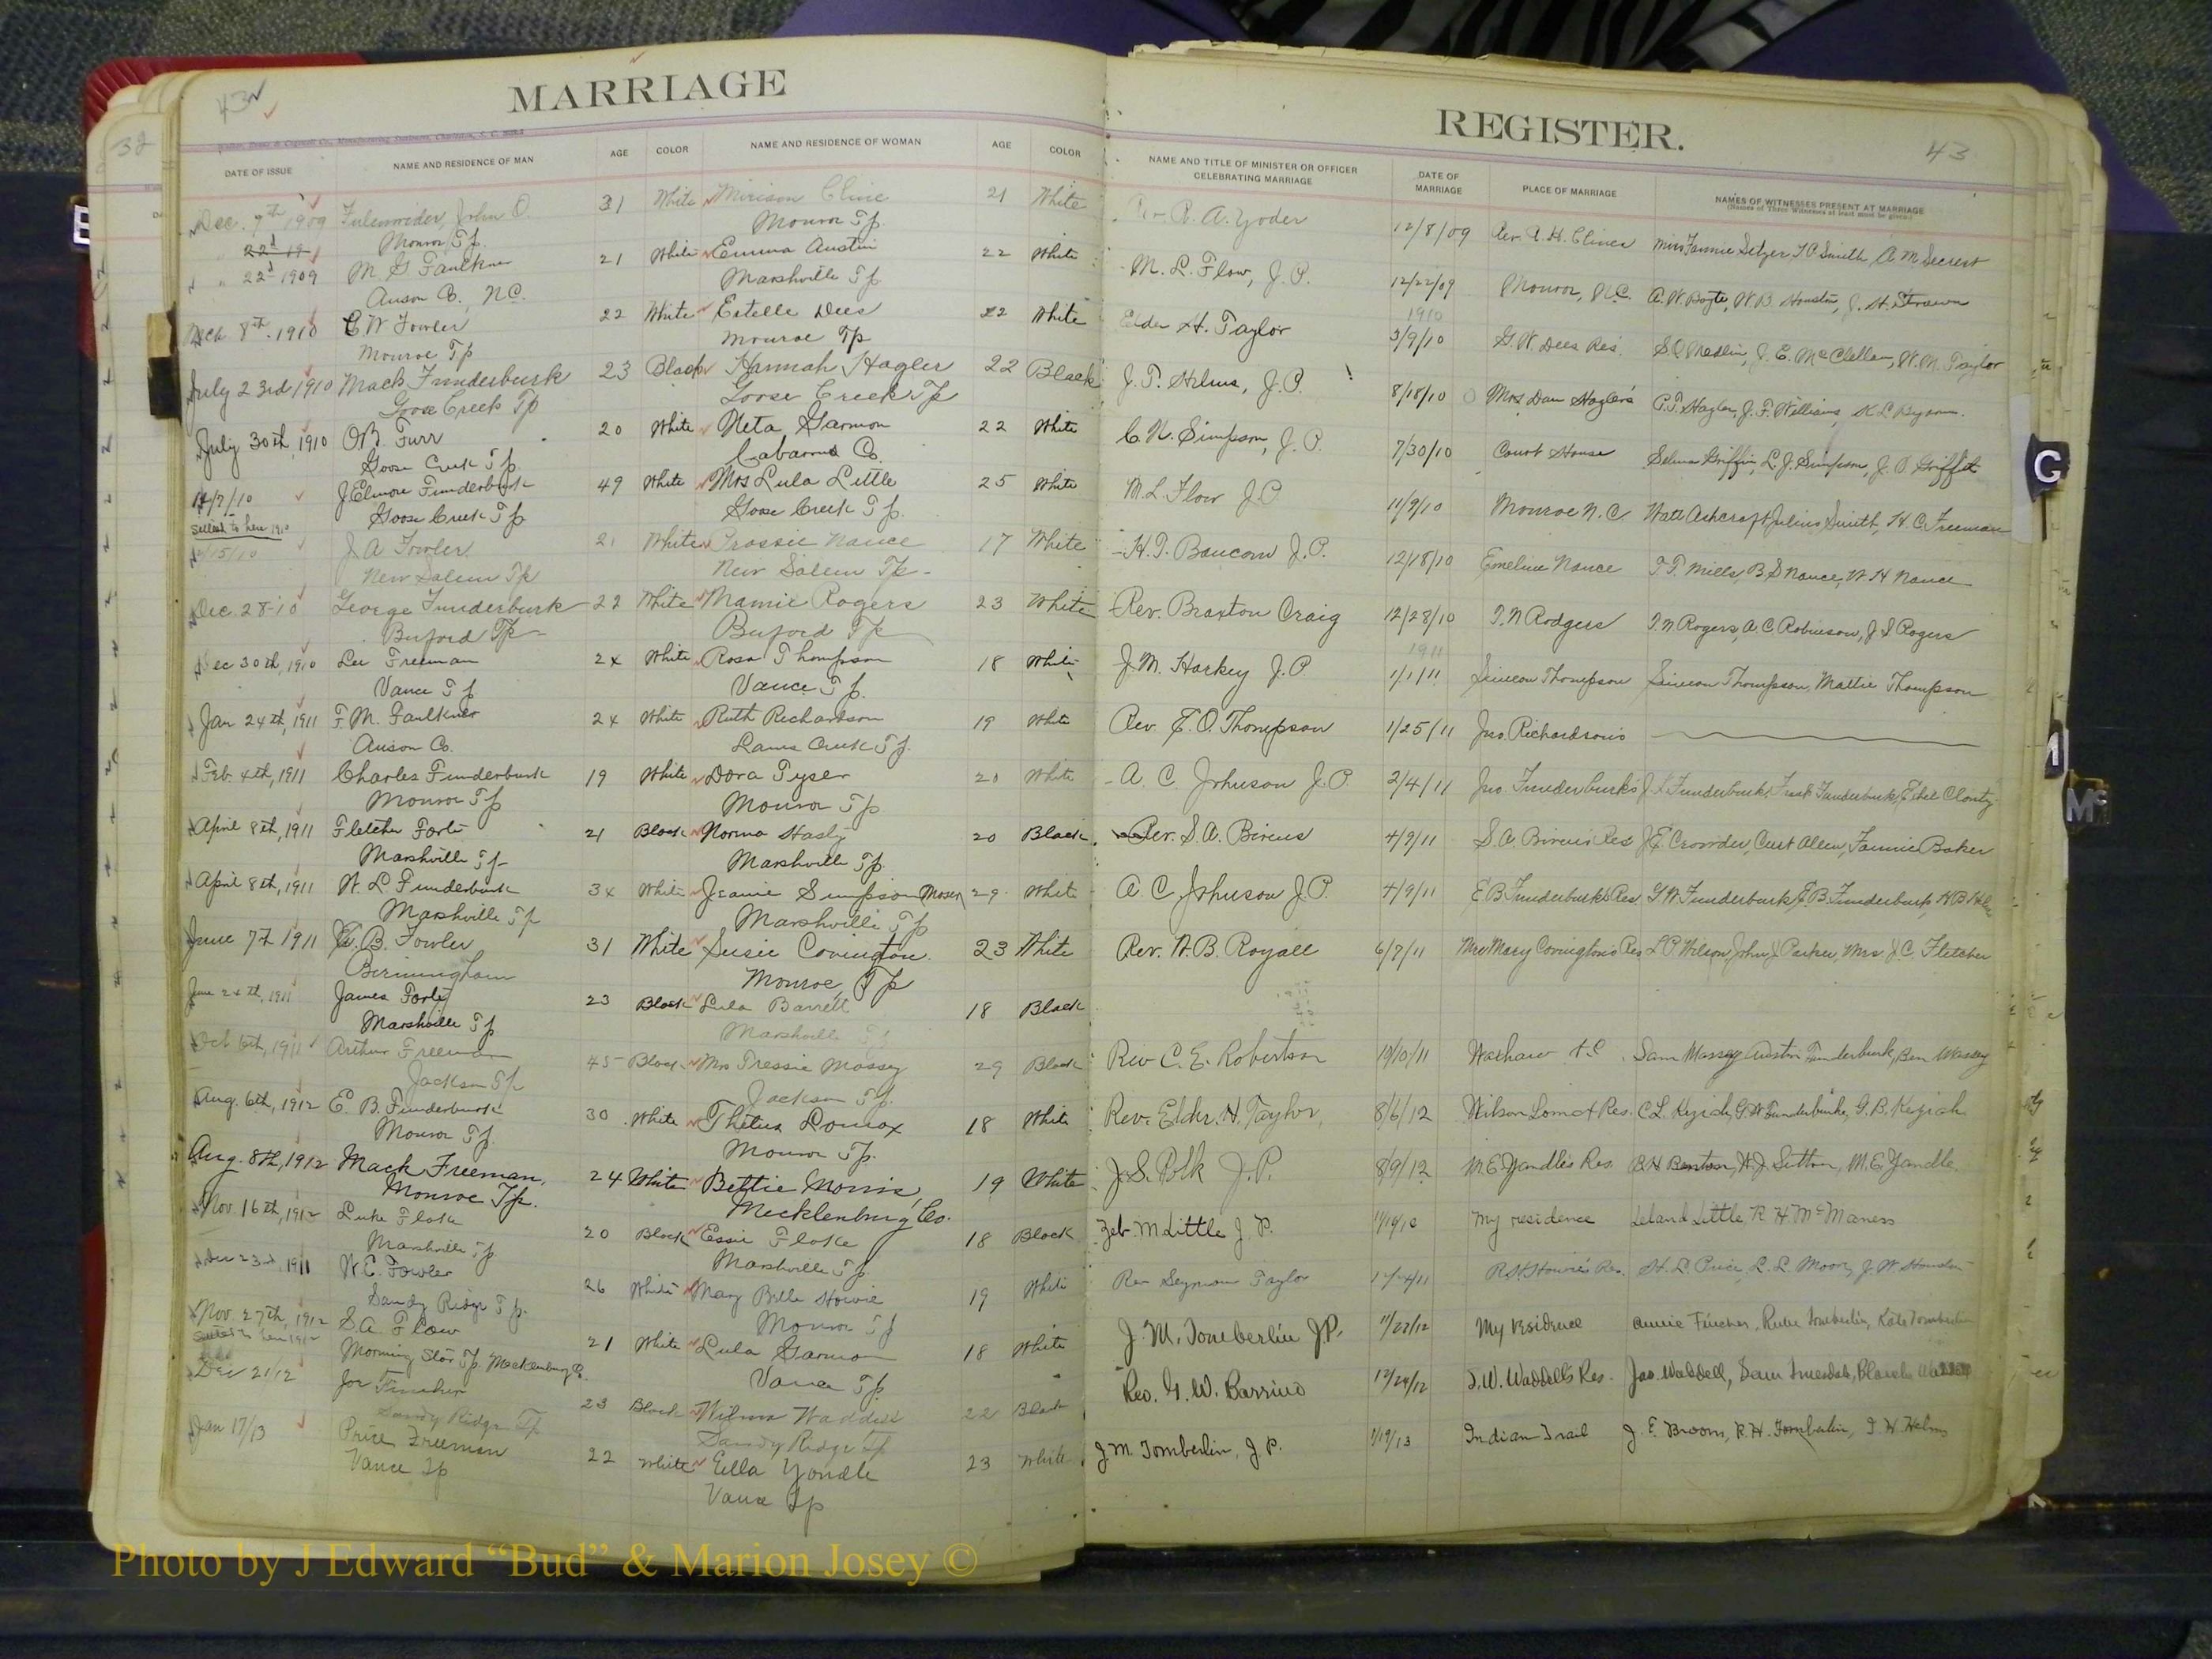 43
MARRIAGE
32
DATE OF ISSUE NAME AND RESIDENCE OF MAN AGE COLOR NAME AND RESIDENCE OF WOMAN AGE COLOR
Dec. 7th 1909 Fulenwider, John O. 31 White Cline 21 White
Monroe Tp. Monroe Tp.
22d 1909 M. G. Faulkner 21 White Emma Austin 22 White
Anson Co. N.C. Marshville Tp.
8th 1910 C W Fowler 22 White Estelle Dees 22 White
Monroe Tp Monroe Tp
July 23rd 1910 Mack Funderburk 23 Black Hannah Hagler 22 Black
Goose Creek Tp Goose Creek Tp
July 30th, 1910 O.B. Furr 20 White Neta Garmon 22 White
Goose Creek Tp. Cabarrus Co.
/9/10 J Elmore Funderburk 49 White Mrs Lula Little 25 White
Goose Creek Tp Goose Creek Tp.
to here 1910
/15/10 J A Fowler 21 White Nance 17 White
New Salem Tp New Salem Tp-
Dec. 28-10 George Funderburk 22 White Mamie Rogers 23 White
Buford Tp- Buford Tp
Dec 30th, 1910 Lee Freeman 24 White Rosa Thompson 18 White
Vance Tp Vance Tp.
Jan 24th, 1911 F. M. Faulkner 24 White Ruth Richardson 19 White
Anson Co. Lanes Creek Tp.
Feb. 4th, 1911 Charles Funderburk 19 White Dora Tyser 20 White
Monroe Tp Monroe Tp
April 8th, 1911 Fletcher 21 Black Norma Hasty 20 Black
Marshville Tp- Marshville Tp.
April 8th, 1911 W. L Funderburk 34 White Jeanie Simpson 29 White
Marshville Tp Marshville Tp
June 7th 1911 B. Fowler 31 White Susie Covington 23 White
Birmingham Monroe, Tp
June 24th, 1911 James 23 Black Lula Barrett 18 Black
Marshville Tp Marshville Tp
Oct 6th, 1911 Arthur Freeman 45 Black Mrs Tressie Massey 29 Black
Jackson Tp Jackson Tp.
Aug. 6th, 1912 E. B. Funderburk 30 White Thetus Lomax 18 White
Monroe Tp. Monroe Tp.
Aug. 8th, 1912 Mack Freeman, 24 White Bettie Morris, 19 White
Monroe Tp. Mecklenburg Co.
Nov. 16th, 1912 Luke Flake 20 Black Essie Flake 18 Black
Marshville Tp Marshville Tp.
Dec 23d, 1911 W. E. Fowler 26 White Mary Belle Howie 19 White
Sandy Ridge Tp. Monroe Tp
Nov 27th, 1912 S.A. Flow 21 White Lula Garmon 18 White
Morning Star Tp. Mecklenburg Co. Vance Tp
Dec 21/12 Joe 23 Black Wilma Waddell 22 Black
Sandy Ridge Tp Sandy Ridge Tp
Jan 17/13 Price Freeman 22 White Ella Yandle 23 White
Vance Tp Vance Tp
REGISTER.
43
NAME AND TITLE OF MINISTER OR OFFICER CELEBRATING MARRIAGE DATE OF MARRIAGE PLACE OF MARRIAGE NAMES OF WITNESSES PRESENT AT MARRIAGE
(Names of Three Witnesses at least must be given.)
A. Yoder 12/8/09 Rev. A. H. Clines Miss Fannie Setzer A. M. Secrest
M. L. Flow, J. P. 12/22/09 Monroe, N.C. W B Houston,
1910
Elder H. Taylor 3/9/10 G. W. Dees Res. J. E. McClellan, W. M. Taylor
J. T. Helms, J.P. 8/18/10 Mrs Dan Hagler's P.T. Hagler, J. F. Williams,
C. N. Simpson, J. P. 7/30/10 Court House Selma Griffin, L. J. Simpson, J. Griffith
M L Flow J.P. 11/9/10 Monroe N.C. Watt Ashcraft, Julius Smith, H. C. Freeman
H. T. Baucom J.P. 12/18/10 Emeline Nance T. T. Mills, B S Nance, W H Nance
Rev. Braxton Craig 12/28/10 T. N Rodgers T. N Rogers, A. C. Robinson, J. S Rogers
1911
J. M. Harkey J.P 1/1/11 Simeon Thompson Simeon Thompson, Mattie Thompson
Rev. O. Thompson 1/25/11 Jno. Richardson's
A. C. Johnson J.P. 2/4/11 Jno. Funderburk's Funderburk, Funderburk,
Rev. S. A. Bivens 4/9/11 S. A. Bivens Res Crowder, Curt Allen, Fannie Baker
A C Johnson J.P. 4/9/11 E B Funderburk's Res G. W Funderburk, E.B. Funderburk,
Rev. Royall 6/7/11 Mrs Mary Covington's Res Wilson, John J Parker, Mrs. J. C. Fletcher
Rev C. E. Robertson 10/10/11 Waxhaw N.C. Sam Massey, Austin Funderburk, Ben Massey
Rev. Elder. H. Taylor, 8/6/12 Wilson Lomax Res. C L. Keziah, G W Funderburke, G. B. Keziah
J. S. Polk J.P. 8/9/12 M. E. Yandle's Res. Benton, W. J. Sutton, M.E. Yandle
Zeb M Little J. P. My residence Leland Little, R H. McManess
Rev Seymour Taylor Res. H. L. Price, R. L. Moore, J. W.
J. M. Tomberlin JP. My residence Annie Fincher, Tomberlin, Kate Tomberlin
Rev. G. W. 12/24/12 J.W. Waddell's Res. Jas. Waddell, Sam
J M. Tomberlin, J. P. 1/19/13 Indian Trail J. E. Broom, R. H. Tomberlin, Helms
G
M
Mc
Photo by J Edward “Bud” & Marion Josey ©